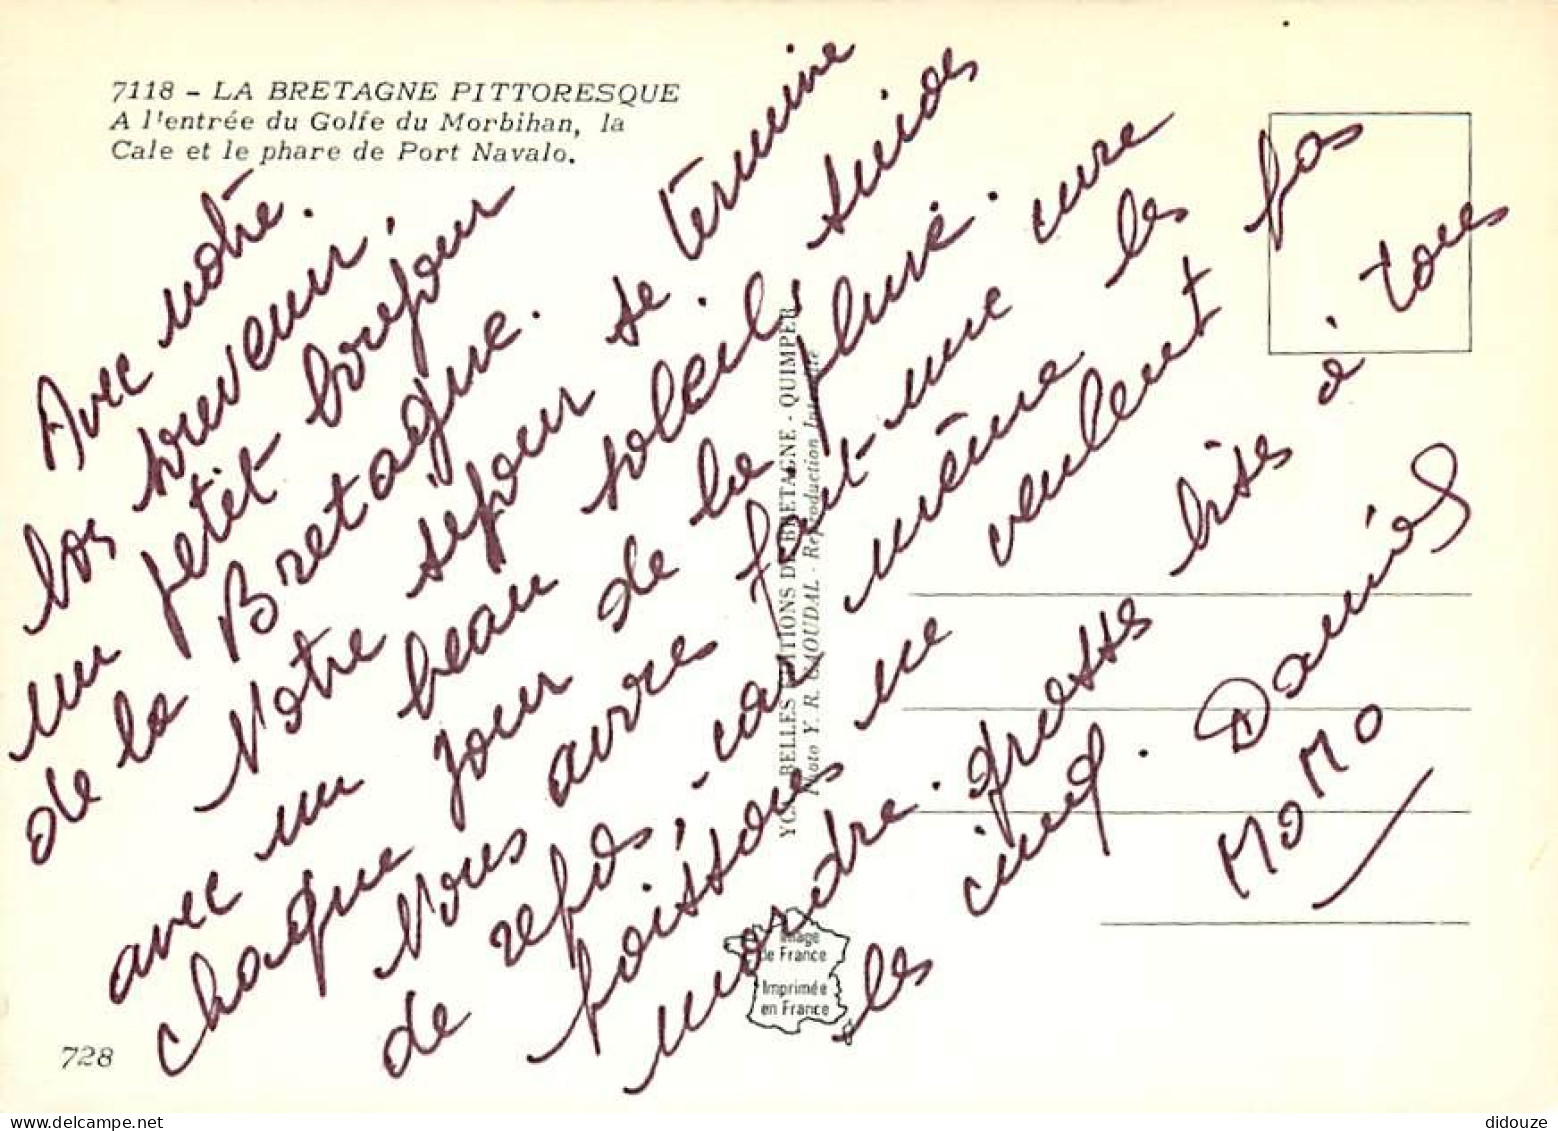 7118 - LA BRETAGNE PITTORESQUE
A l'entrée du Golfe du Morbihan, la
Cale et le phare de Port Navalo.
Avec notre.
bon souvenir,
un petit bonjour
de la Bretagne.
Notre séjour se termine
avec un beau soleil,
chaque jour de la pluie.
Nous avons fait-une cure
de repos, car même les
poissons ne veulent pas
mordre. grosses bises à tous
les cinq. Daniel
MOMO
YCA BELLES EDITIONS DE BRETAGNE - QUIMPER
Photo Y. R. CAOUDAL - Reproduction Interdite
Image
de France
Imprimée
en France
728
delcampe.net
didouze